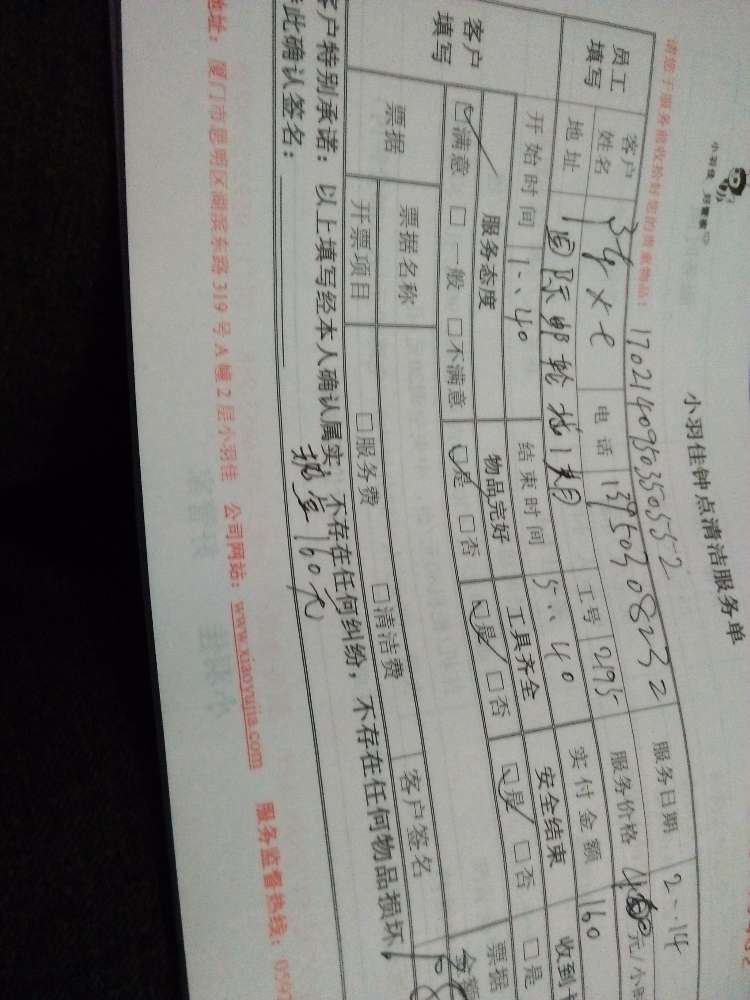 小羽佳钟点清洁服务单
请您于服务前收拾好您的贵重物品！
17021409503505552
服务日期 2..14
员工填写 客户姓名 电话 13950308232 服务价格 元/小时
地址 国际邮轮城1期 工号 2195 实付金额 160
客户填写 开始时间 1..40 结束时间 5..40
服务态度 物品完好 工具齐全 安全结束 收到
☑满意 □一般 □不满意 ☑是 □否 ☑是 □否 ☑是 □否 □是
票据 票据名称 □服务费 □清洁费 客户签名 票据
开票项目 金额
客户特别承诺：以上填写经本人确认属实，不存在任何纠纷，不存在任何物品损坏，
特此确认签名：
现金160元
地址：厦门市思明区湖滨东路319号A幢2层小羽佳 公司网站：www.xiaoyujia.com 服务监督热线：0592